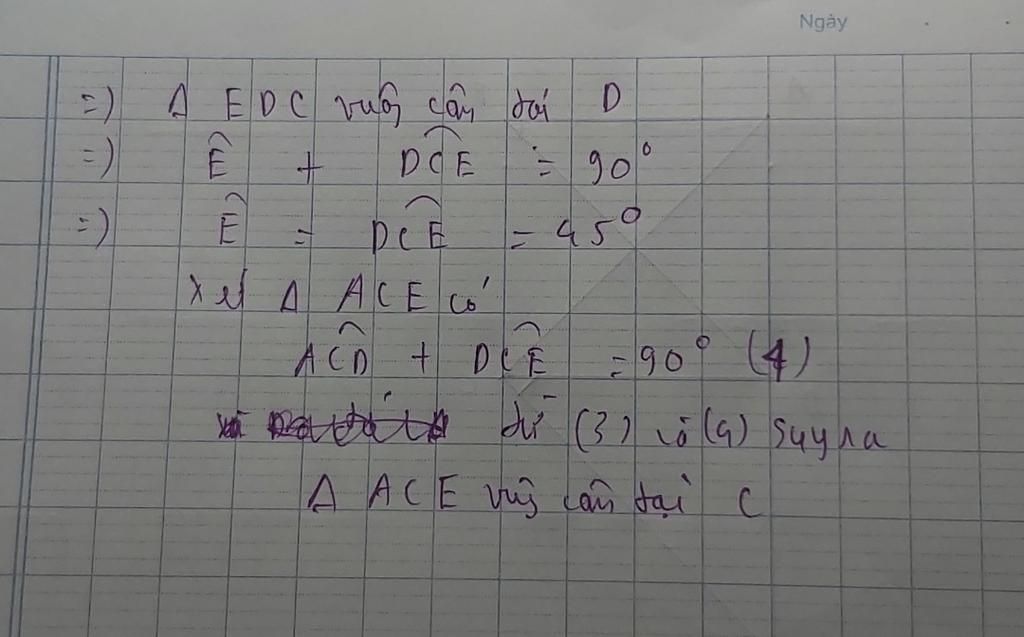 Ngày
=) Δ EDC vuông cân tại D
=) Ê + DĈE = 90°
=) Ê = DĈE = 45°
Xét Δ ACE có
AĈD + DĈE = 90° (4)
từ (3) và (4) suy ra
Δ ACE vuông cân tại C